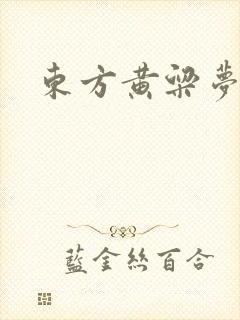 東方黃粱夢
藍金絲百合